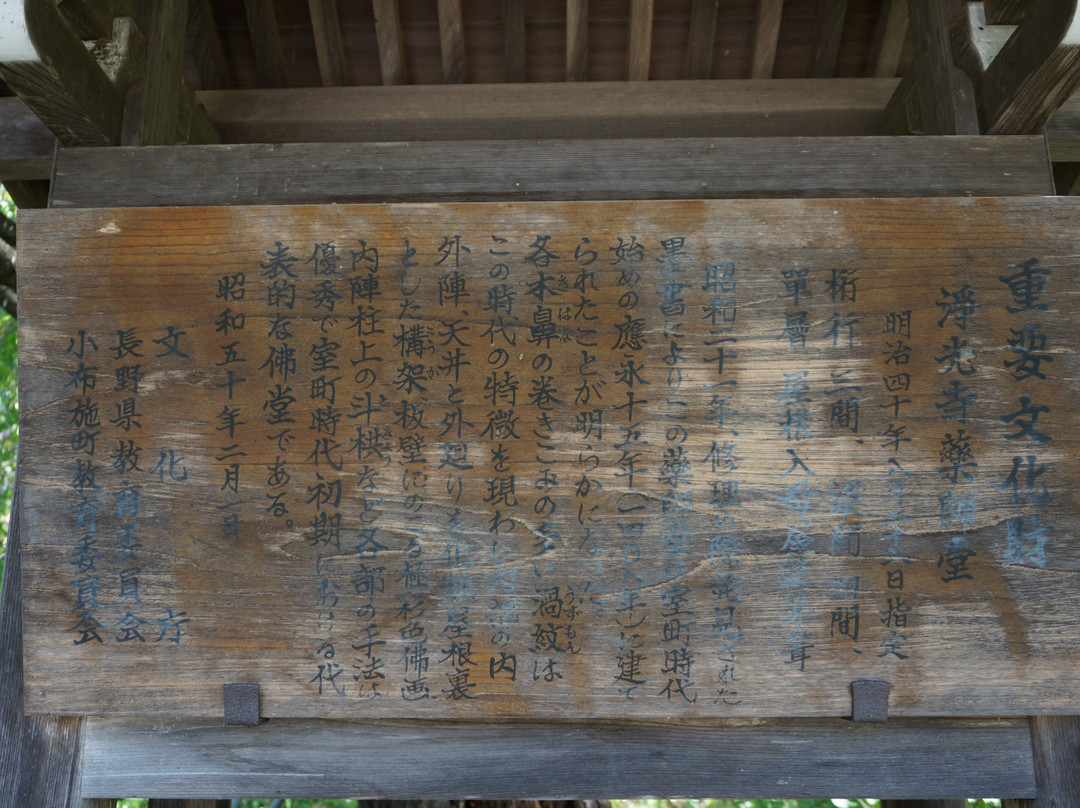 重要文化財
淨光寺藥師堂
明治四十年八月 日指定
桁行 三間、梁間 四間、
單層 屋根入母屋造茅葺
昭和二十一年、修理 際 発見された
墨書によりこの藥師堂は室町時代
始めの應永十五年(一四〇八年)に建て
られたことが明らかになった。
各木鼻の巻きこみの多い渦紋は
きばな
うずもん
この時代の特徴を現わし の内
外陣、天井と外廻りを化粧屋根裏
とした構架、板壁にのこる極彩色佛画
こうか
内陣柱上の斗栱など各部の手法は
ときょう
優秀で室町時代初期における代
表的な佛堂である。
昭和五十年二月一日
文化庁
長野県教育委員会
小布施町教育委員会